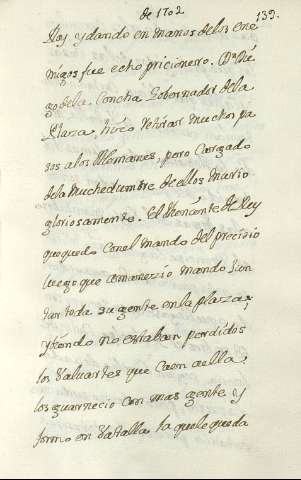 de 1702
139.
Rey y dando en manos de los ene
migos fue echo pricionero. Dn. Die
go de la Concha Gobernador de la
Plaza, hizo retirar muchos pa
sos a los Alemanes, pero Cargado
de la Muchedumbre de ellos murio
gloriosamente. El theniente de Rey
que quedo con el mando del precidio
luego que amanezio mando Jun
tar toda su gente en la plaza,
y biendo no estaban perdidos
los Valuartes que caen a ella,
los guarnecio con mas gente y
formo en Vatalla la que le queda